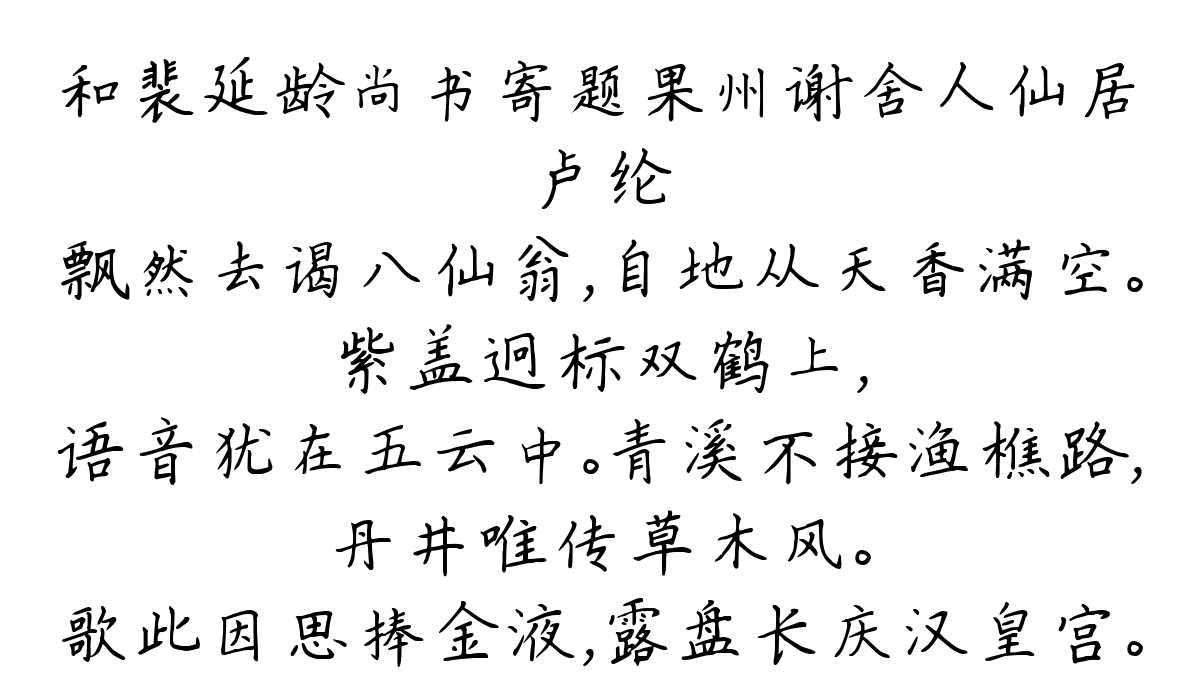 和裴延龄尚书寄题果州谢舍人仙居
卢纶
飘然去谒八仙翁,自地从天香满空。
紫盖迥标双鹤上,
语音犹在五云中。青溪不接渔樵路,
丹井唯传草木风。
歌此因思捧金液,露盘长庆汉皇宫。